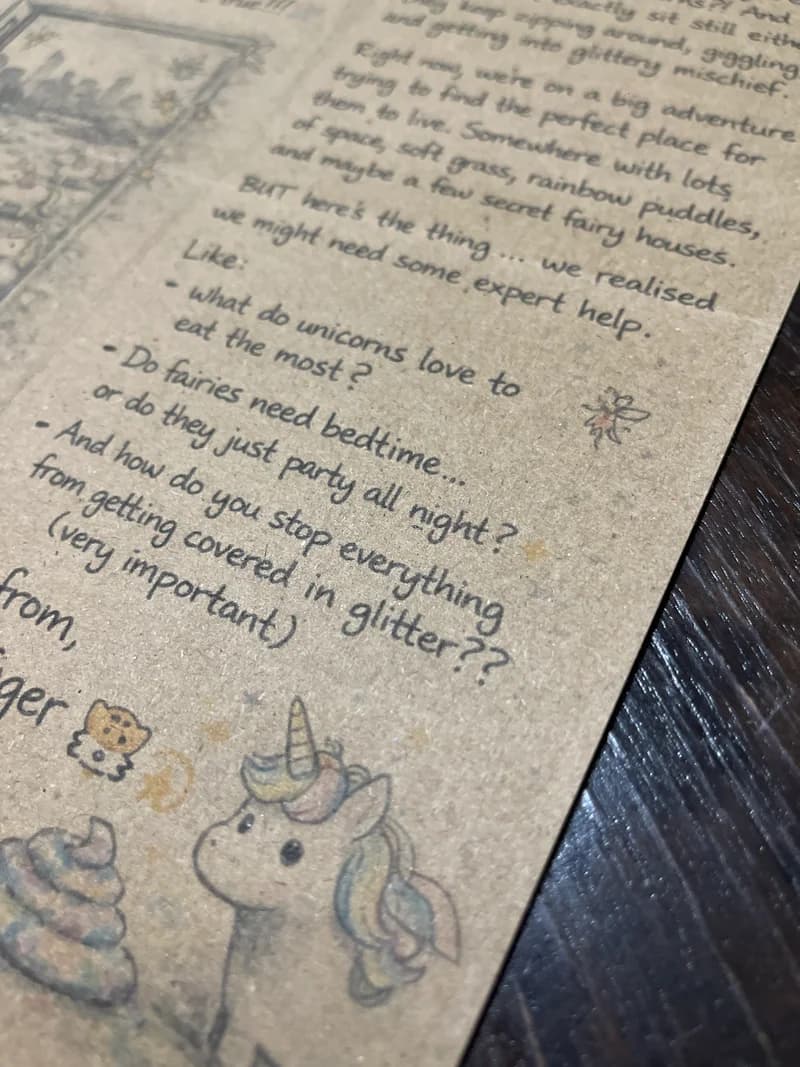 true!!!
And
exactly sit still
they keep zipping around, giggling
and getting into glittery mischief.
Right now, we're on a big adventure
trying to find the perfect place for
them to live. Somewhere with lots
of space, soft grass, rainbow puddles,
and maybe a few secret fairy houses.
BUT here's the thing ... we realised
we might need some expert help.
Like:
• what do unicorns love to
eat the most?
• Do fairies need bedtime...
or do they just party all night?
• And how do you stop everything
from getting covered in glitter??
(very important)
from,